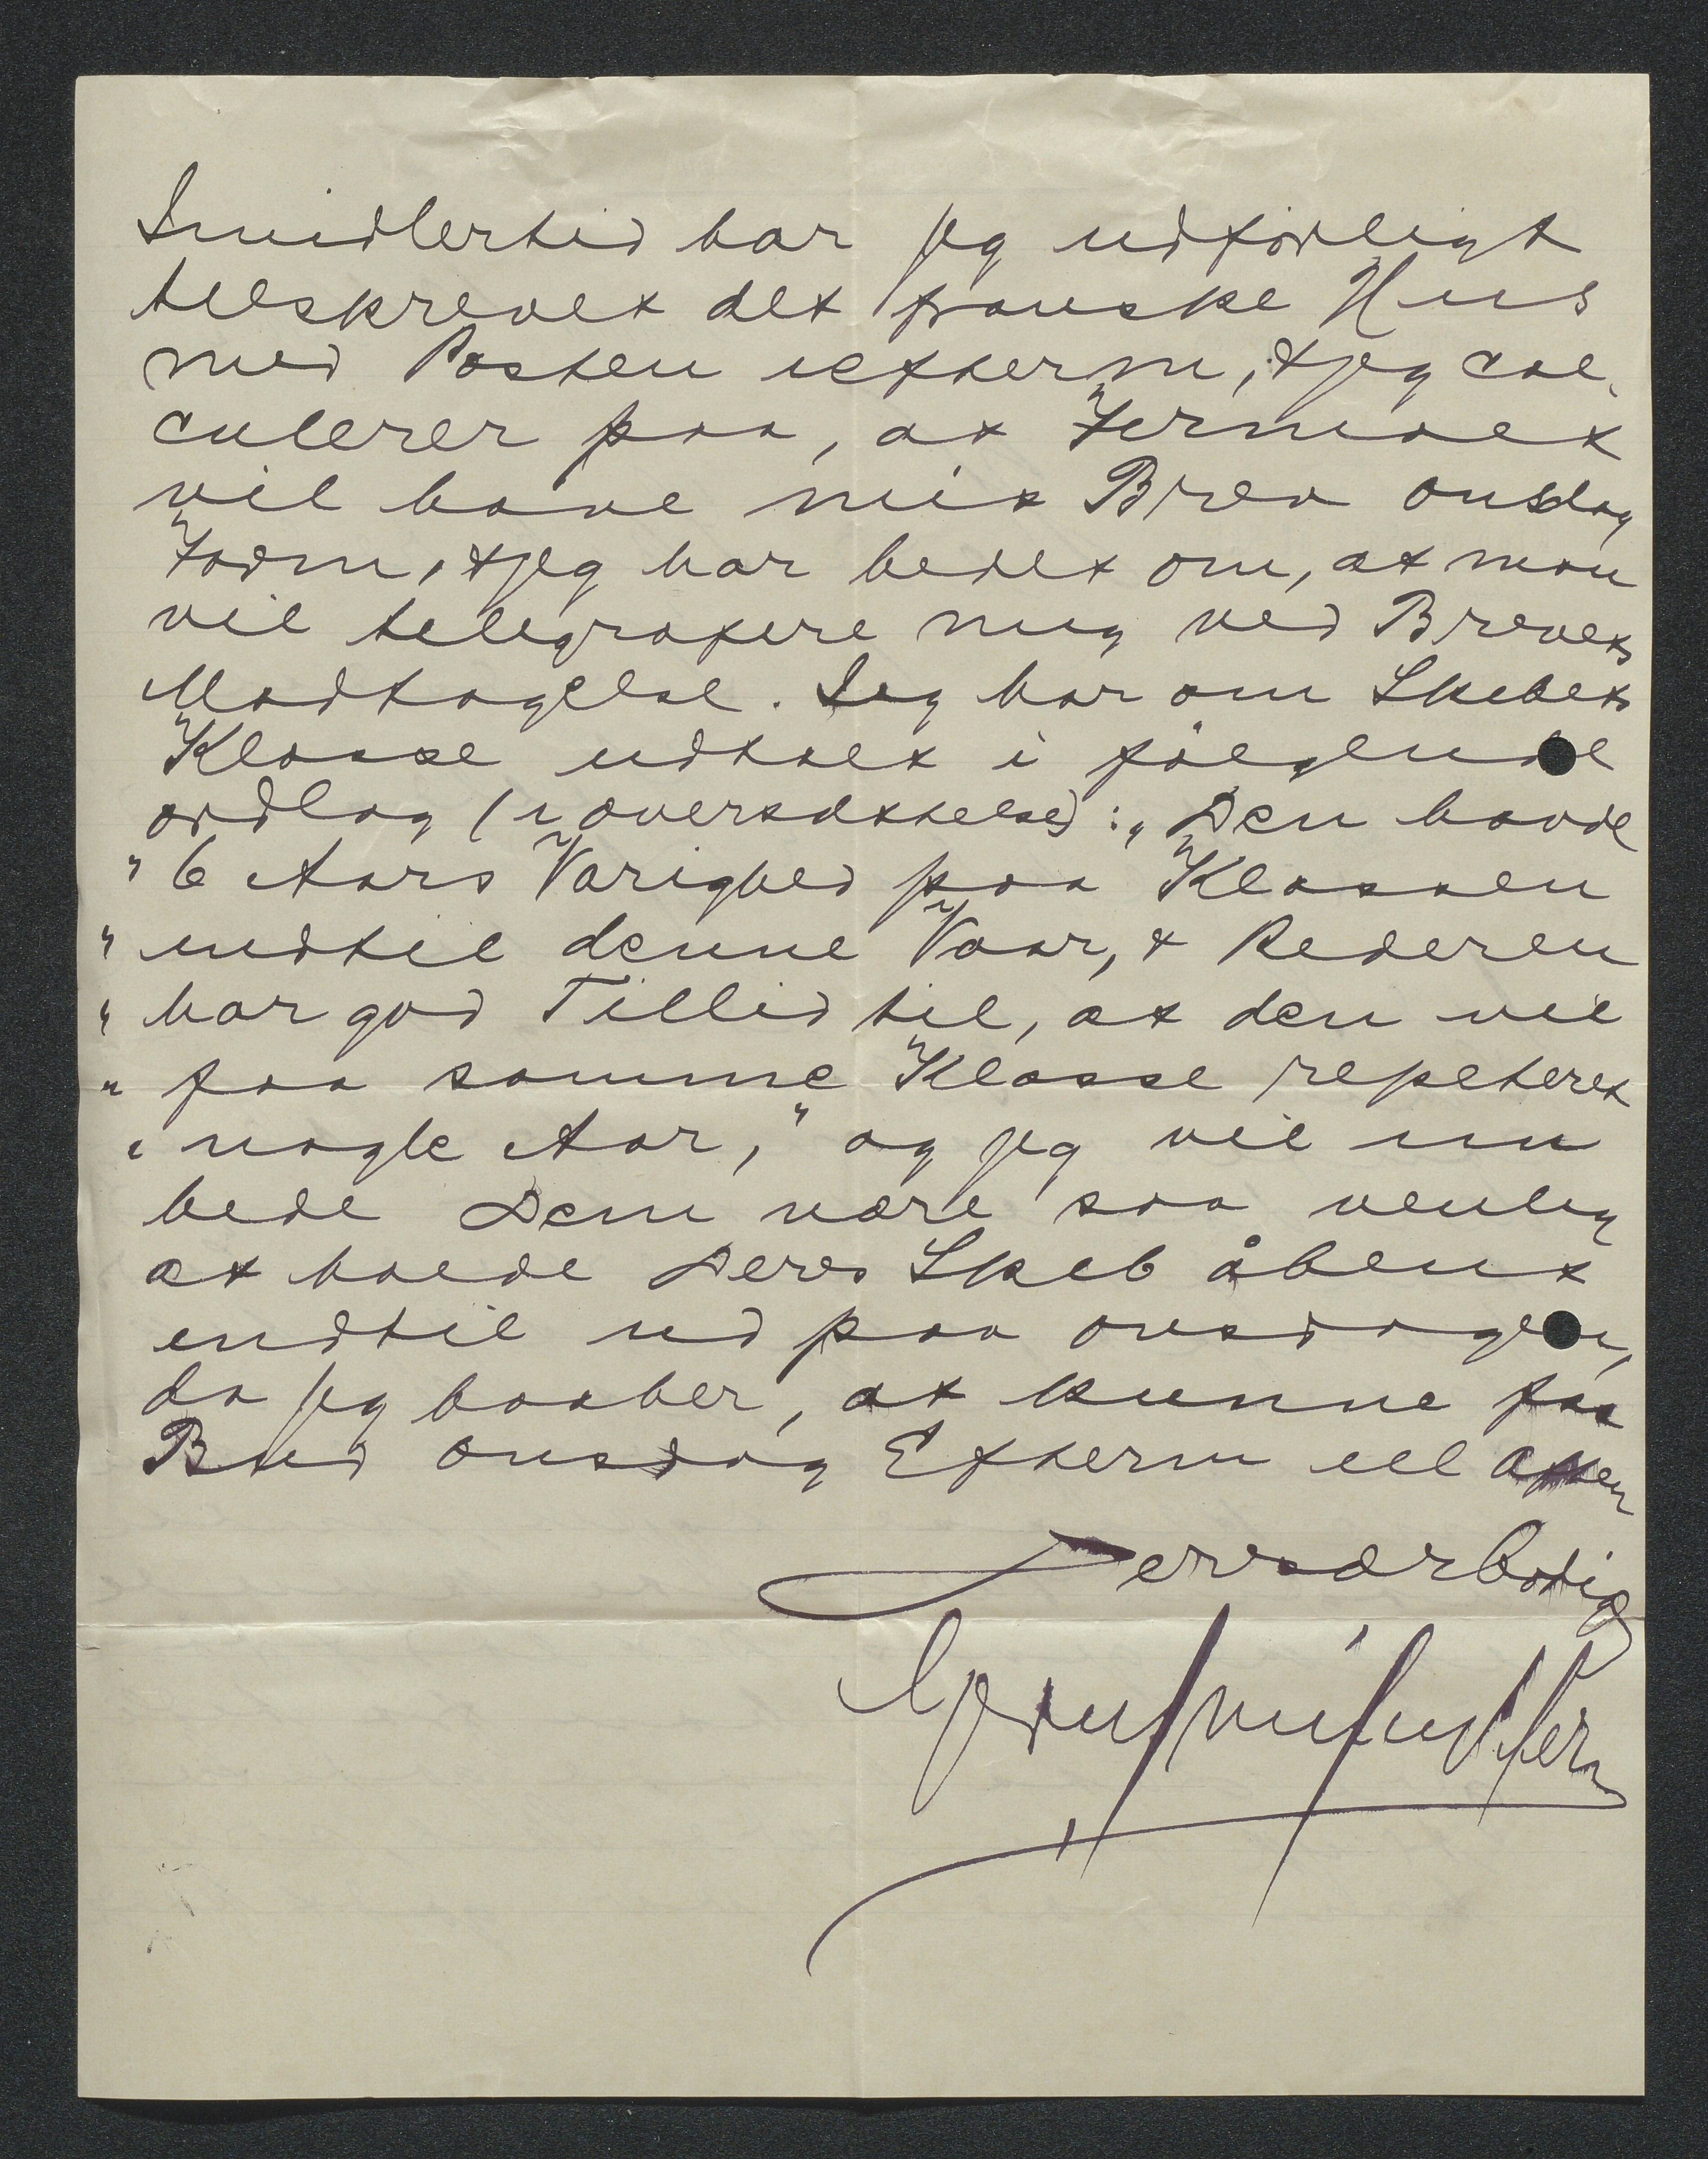 Imidlertid har jeg udførligt
tilskrevet det franske Hus
med Posten iefterm, & jeg cal-
culerer paa, at Firmaet
vil have mit Brev onsdag
Form, & jeg har bedet om, at man
vil telegrafere mig ved Brevets
Modtagelse. Jeg har om Skibets
Klasse udtalt i følgende
ordlag (i oversættelse): „Den havde
" 6 Aars Varighed paa Klassen
" indtil denne Vaar, & Rederen
" har god Tillid til, at den vil
" faa samme Klasse repeteret
" nogle Aar," og jeg vil nu
bede Dem være saa venlig
at holde Deres Skib åbent
indtil ud paa onsdagen,
da jeg haaber, at kunne faa
Bud onsdag Efterm ell aften
Deresærbødig